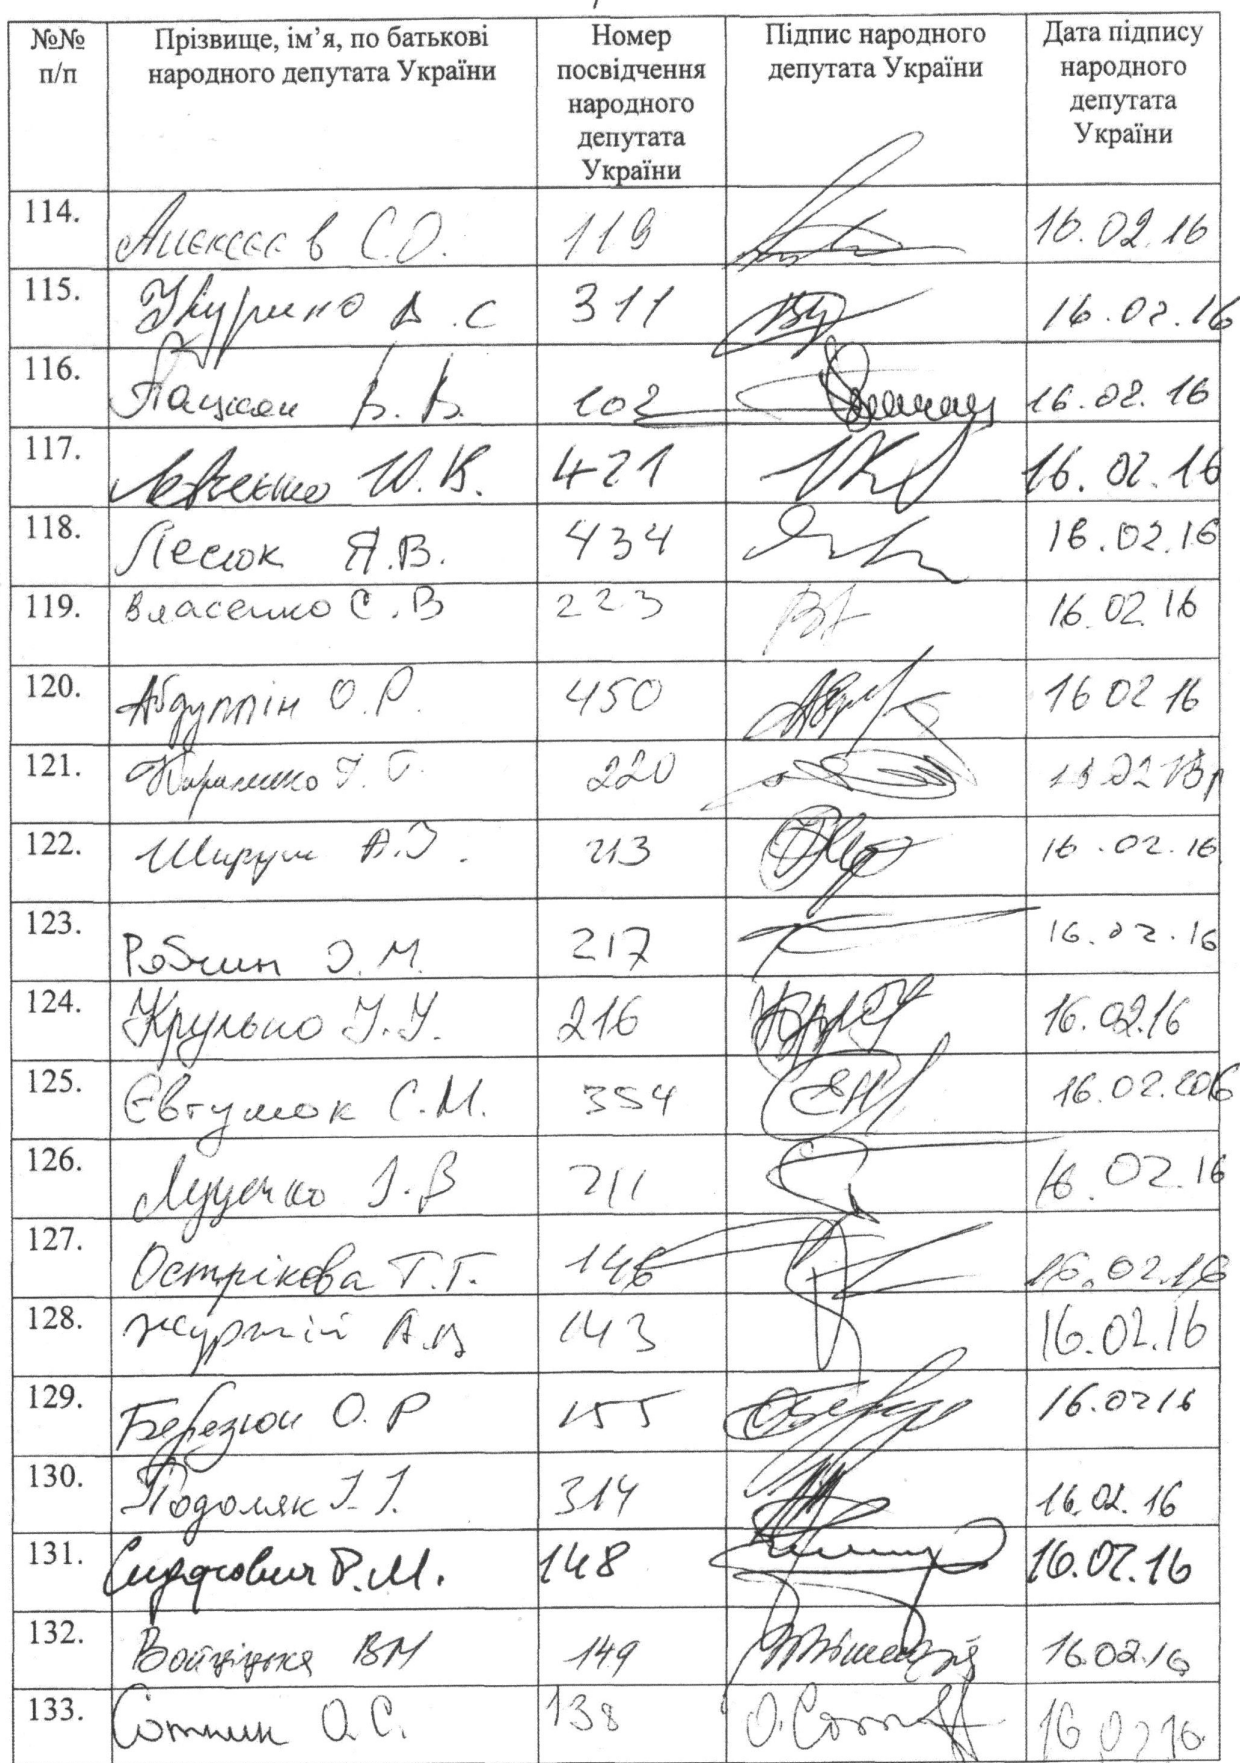 №№ п/п | Прізвище, ім’я, по батькові народного депутата України | Номер посвідчення народного депутата України | Підпис народного депутата України | Дата підпису народного депутата України
114. Алексєєв С.О. 119 16.02.16
115. С 311 16.02.16
116. Пацкан В.В. 102 16.02.16
117. Левченко Ю.В. 421 16.02.16
118. Лесюк Я.В. 434 16.02.16
119. Власенко С.В 223 16.02.16
120. Абдуллін О.Р. 450 16 02 16
121. 220
122. А.І. 213 16.02.16
123. Рябчин О.М. 217 16.02.16
124. Крулько І.І. 216 16.02.16
125. Євтушок С.М. 354 16.02.2016
126. Луценко І.В 211 16.02.16
127. Острікова Т.Г. 146 16.02.16
128. Журжій А.В 143 16.02.16
129. Березюк О.Р 155 16.02 16
130. Подоляк І.І. 314 16.02.16
131. Сидорович Р.М. 148 16.02.16
132. Войціцька ВМ 149 16.02.16
133. Сотник О.С. 138 16 02 16.